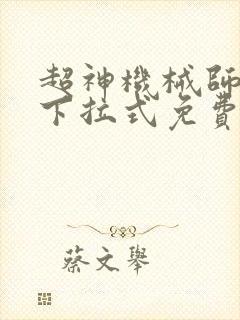 超神機械師
下拉式免費
蔡文舉